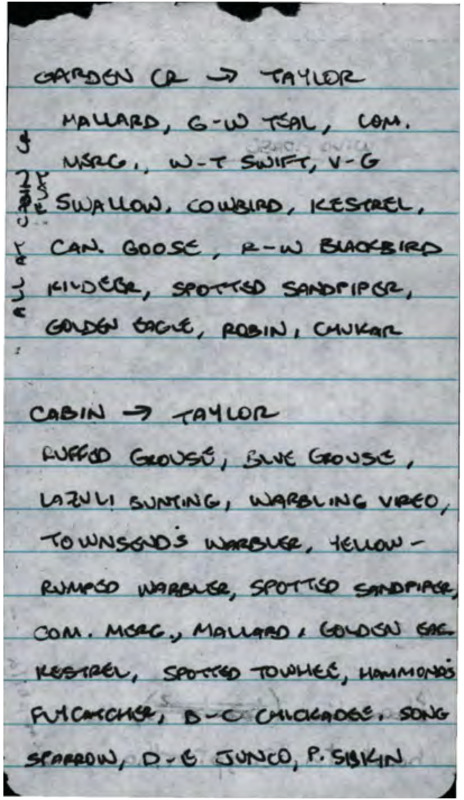 GARDEN CR → TAYLOR
MALLARD, G-W TEAL, COM.
MERG., W-T SWIFT, V-G
SWALLOW, COWBIRD, KESTREL,
CAN. GOOSE, R-W BLACKBIRD
KILDEER, SPOTTED SANDPIPER,
GOLDEN EAGLE, ROBIN, CHUKAR
ALL AT CABIN CR
FLAT
CABIN → TAYLOR
RUFFED GROUSE, BLUE GROUSE,
LAZULI BUNTING, WARBLING VIREO,
TOWNSEND'S WARBLER, YELLOW-
RUMPED WARBLER, SPOTTED SANDPIPER,
COM. MERG., MALLARD, GOLDEN EAG.
KESTREL, SPOTTED TOWHEE, HAMMOND'S
FLYCATCHER, B-C CHICKADEE, SONG
SPARROW, D-E JUNCO, P. SISKIN